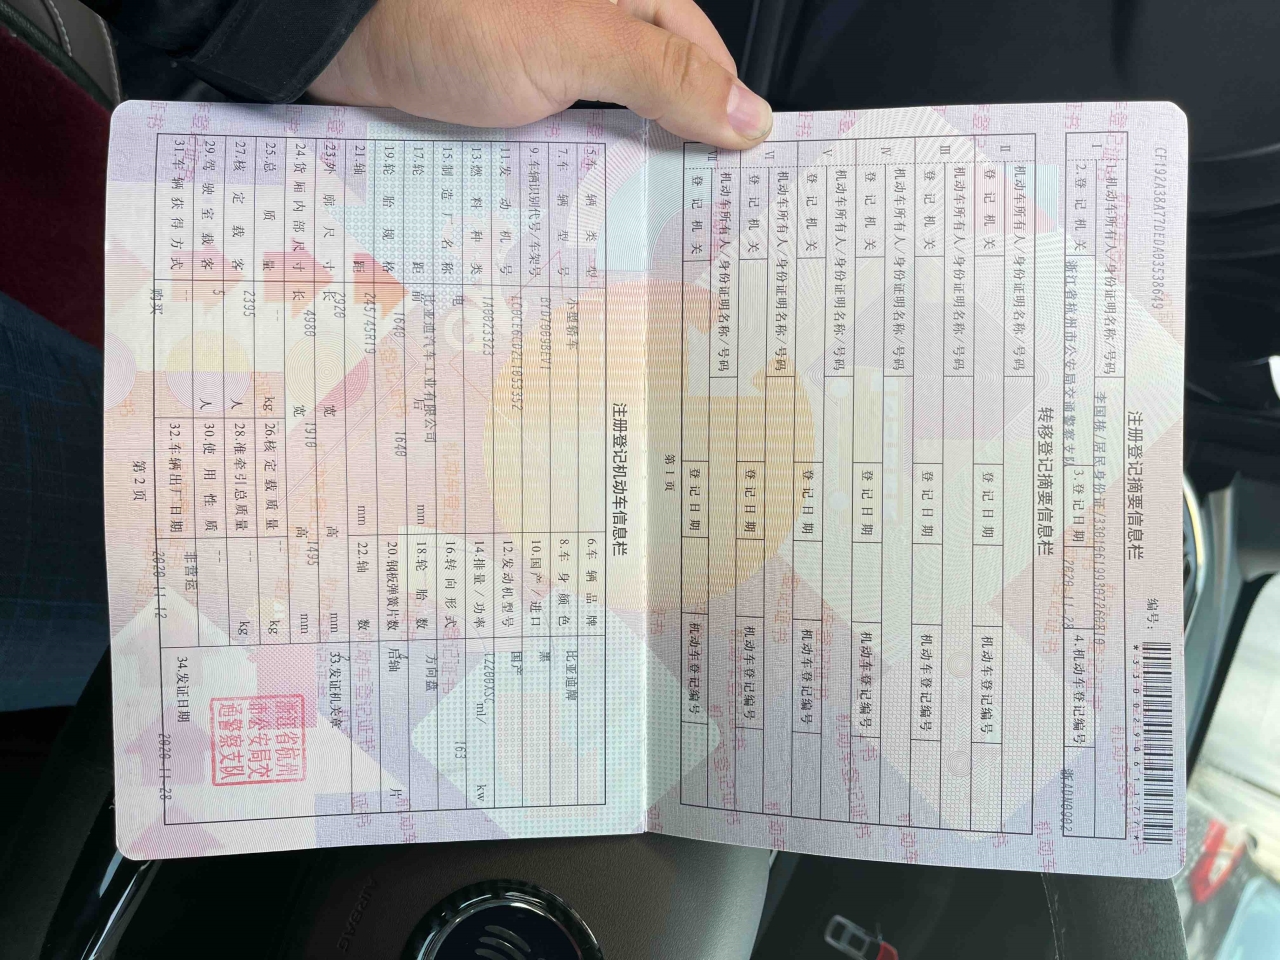 CF192A38A77DEDA03538649
注册登记摘要信息栏
编号:
*330029061177*
I
1.机动车所有人/身份证明名称/号码
李国栋/居民身份证/
2.登记机关
浙江省杭州市公安局交通警察支队
3.登记日期
2020-11-28
4.机动车登记编号
转移登记摘要信息栏
II
机动车所有人/身份证明名称/号码
登记机关
登记日期
机动车登记编号
III
机动车所有人/身份证明名称/号码
登记机关
登记日期
机动车登记编号
IV
机动车所有人/身份证明名称/号码
登记机关
登记日期
机动车登记编号
V
机动车所有人/身份证明名称/号码
登记机关
登记日期
机动车登记编号
VI
机动车所有人/身份证明名称/号码
登记机关
登记日期
机动车登记编号
VII
机动车所有人/身份证明名称/号码
登记机关
登记日期
机动车登记编号
第 1 页
注册登记机动车信息栏
5.车辆类型 小型轿车 6.车辆品牌 比亚迪牌
7.车辆型号 BYD7009BEV1 8.车身颜色 黑
9.车辆识别代号/车架号 LC0CE6CD2L1053352 10.国产/进口 国产
11.发动机号 12.发动机型号
13.燃料种类 电 14.排量/功率 ml/ 163 kw
15.制造厂名称 比亚迪汽车工业有限公司 16.转向形式 方向盘
17.轮距 前 1640 后 1640 mm 18.轮胎数
19.轮胎规格 245/45R19 20.钢板弹簧片数 后轴 -- 片
21.轴距 2920 mm 22.轴数 2
23.外廓尺寸 长 4980 宽 1910 高 1495 mm
33.发证机关章
浙江省杭州市公安局交通警察支队
24.货厢内部尺寸 长 宽 高 mm
25.总质量 2395 kg 26.核定载质量 -- kg
27.核定载客 5 人 28.准牵引总质量 -- kg
29.驾驶室载客 -- 人 30.使用性质 非营运
31.车辆获得方式 购买 32.车辆出厂日期 2020-11-12
34.发证日期 2020-11-28
第 2 页
AIRBAG